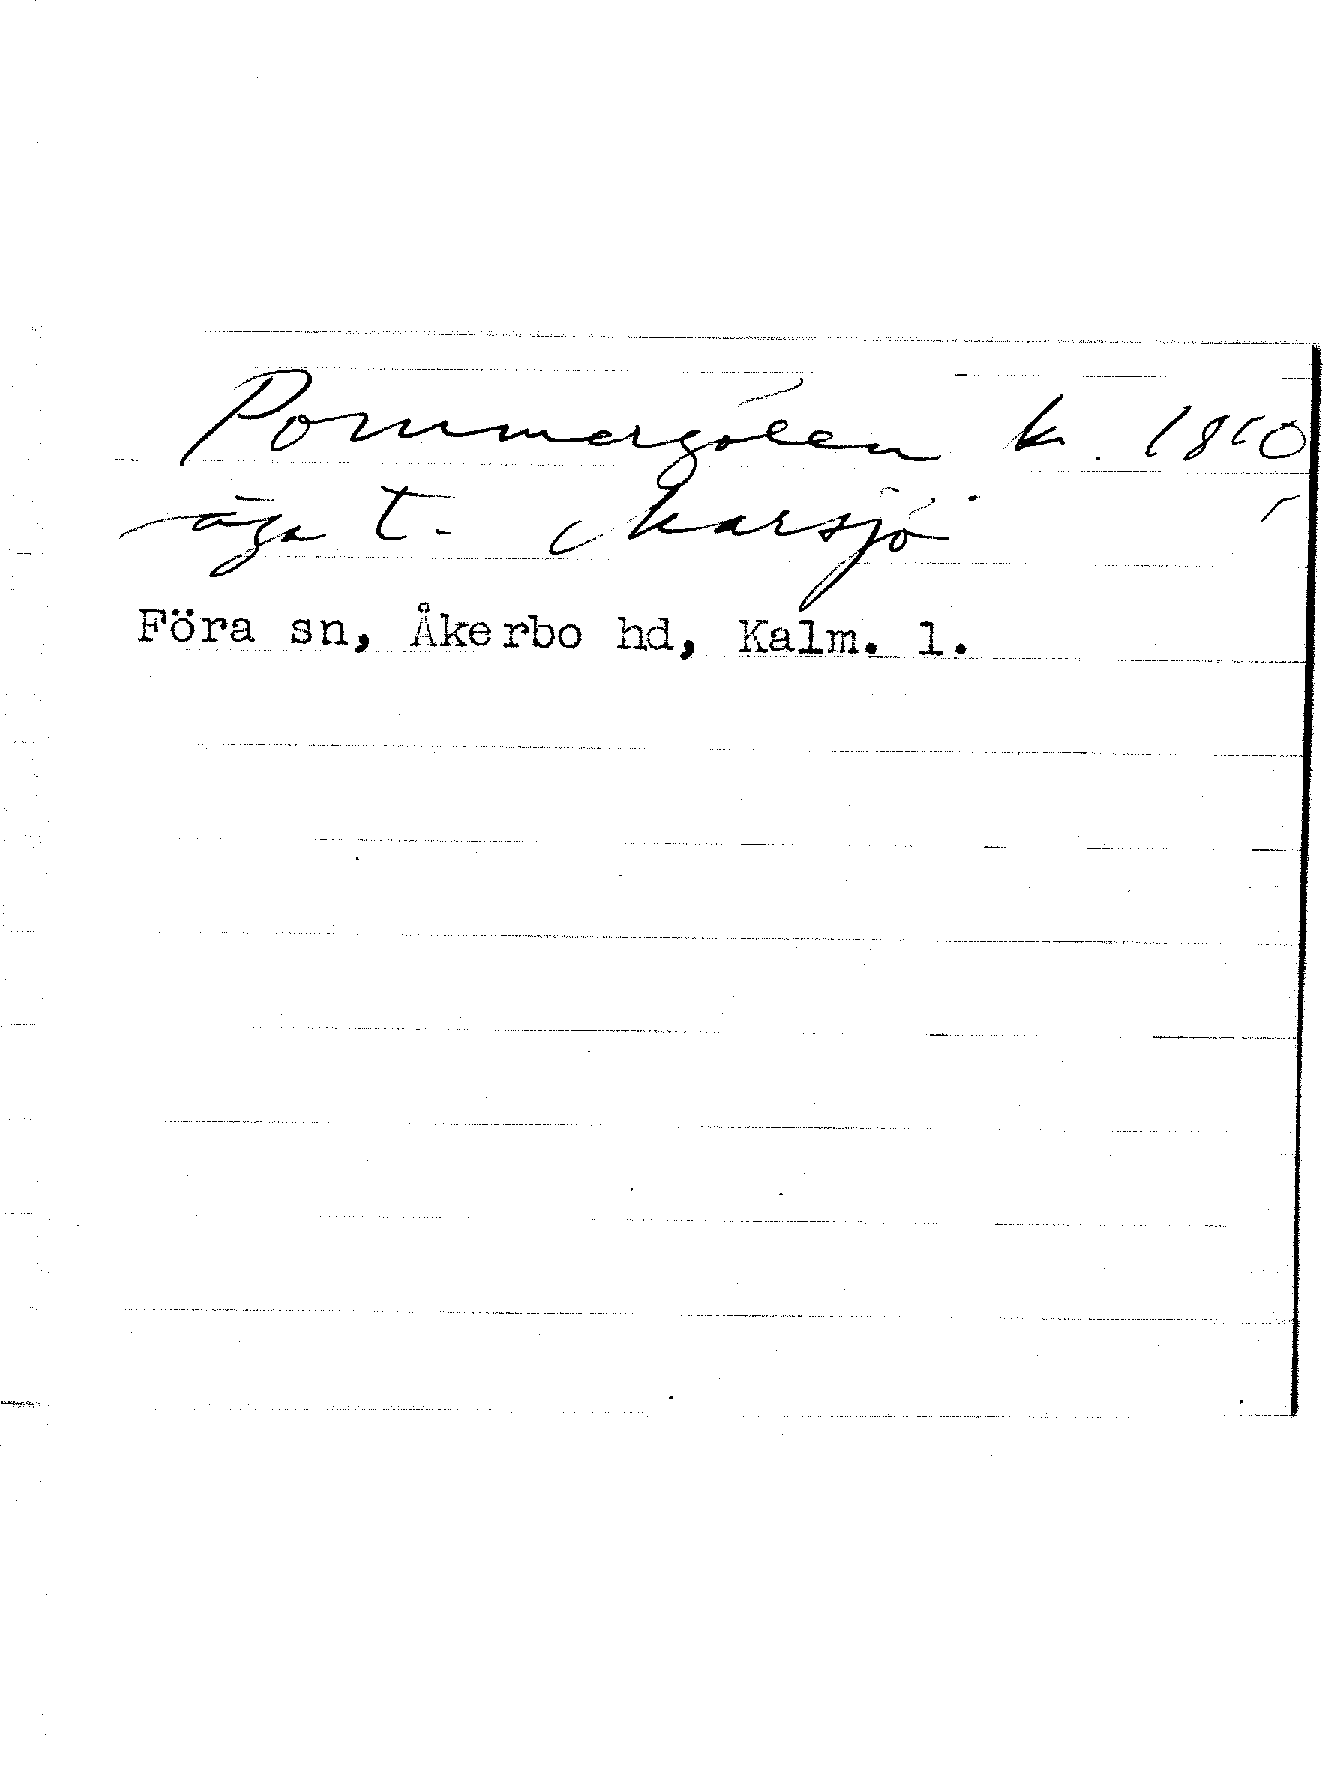 Pommergölen k. 1810
äga t. Marsjö
Föra sn, Åkerbo hd, Kalm. l.